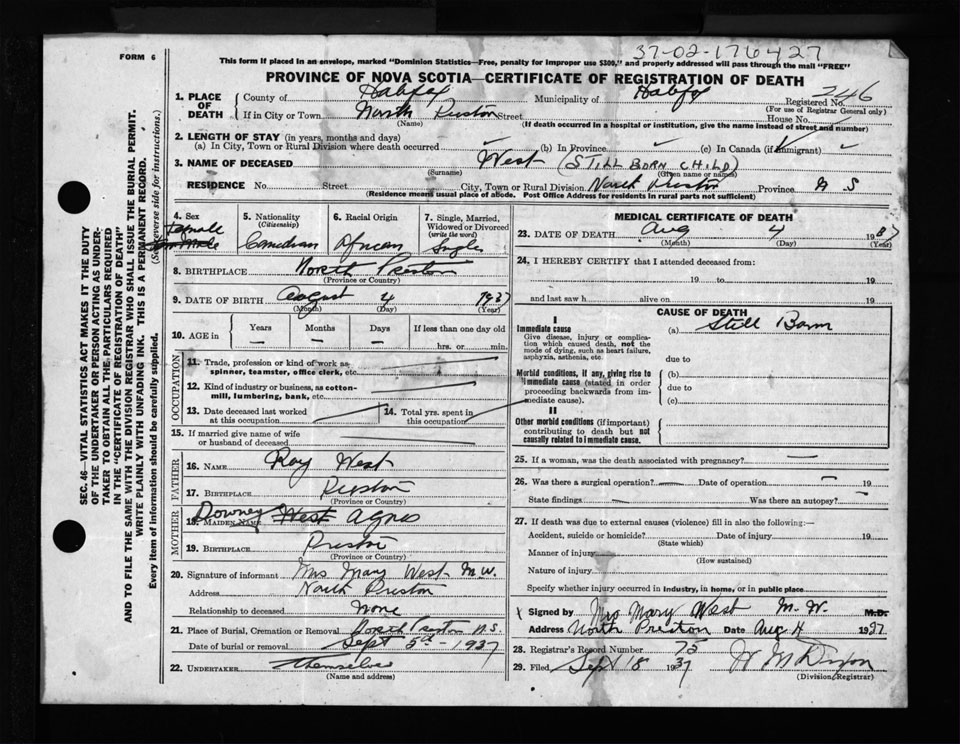 37-02-176427
FORM 6
This form if placed in an envelope, marked "Dominion Statistics—Free, penalty for improper use $300," and properly addressed will pass through the mail "FREE"
PROVINCE OF NOVA SCOTIA—CERTIFICATE OF REGISTRATION OF DEATH
1. PLACE OF DEATH
County of Halifax Municipality of Halifax Registered No. 246
(For use of Registrar General only)
If in City or Town North Preston Street House No.
(Name) (If death occurred in a hospital or institution, give the name instead of street and number)
2. LENGTH OF STAY (in years, months and days)
(a) In City, Town or Rural Division where death occurred ✓ (b) In Province ✓ (c) In Canada (if immigrant) ✓
3. NAME OF DECEASED West (STILL BORN CHILD)
(Surname) (Given name or names)
RESIDENCE No. Street City, Town or Rural Division North Preston Province N S
(Residence means usual place of abode. Post Office Address for residents in rural parts not sufficient)
4. Sex Female
5. Nationality (Citizenship) Canadian
6. Racial Origin African
7. Single, Married, Widowed or Divorced (write the word) Single
8. BIRTHPLACE North Preston
(Province or Country)
9. DATE OF BIRTH August 4 1937
(Month) (Day) (Year)
10. AGE in Years Months Days If less than one day old
— — — hrs. or min.
OCCUPATION
11. Trade, profession or kind of work as spinner, teamster, office clerk, etc.
12. Kind of industry or business, as cotton-mill, lumbering, bank, etc.
13. Date deceased last worked at this occupation
14. Total yrs. spent in this occupation
15. If married give name of wife or husband of deceased
FATHER
16. NAME Roy West
17. BIRTHPLACE Preston
(Province or Country)
MOTHER
18. MAIDEN NAME Downey West Agnes
19. BIRTHPLACE Preston
(Province or Country)
20. Signature of informant Mrs Mary West M.W.
Address North Preston
Relationship to deceased None
21. Place of Burial, Cremation or Removal North Preston N.S.
Date of burial or removal Sept 5th - 1937
22. UNDERTAKER themselves
(Name and address)
MEDICAL CERTIFICATE OF DEATH
23. DATE OF DEATH Aug 4 1937
(Month) (Day) (Year)
24. I HEREBY CERTIFY that I attended deceased from:
19 to 19
and last saw h alive on 19
CAUSE OF DEATH
I
Immediate cause
Give disease, injury or complication which caused death, not the mode of dying, such as heart failure, asphyxia, asthenia, etc.
(a) Still Born
due to
Morbid conditions, if any, giving rise to immediate cause (stated in order proceeding backwards from immediate cause).
(b)
due to
(c)
II
Other morbid conditions (if important) contributing to death but not causally related to immediate cause.
25. If a woman, was the death associated with pregnancy? —
26. Was there a surgical operation? — Date of operation — 19
State findings Was there an autopsy?
27. If death was due to external causes (violence) fill in also the following:—
Accident, suicide or homicide? Date of injury 19
(State which)
Manner of injury
(How sustained)
Nature of injury
Specify whether injury occurred in industry, in home, or in public place
Signed by Mrs Mary West M. W. M.D.
Address North Preston Date Aug 4 1937
28. Registrar's Record Number 75
29. Filed Sept 18 1937 W M Dixon
(Division Registrar)
SEC. 46—VITAL STATISTICS ACT MAKES IT THE DUTY
OF THE UNDERTAKER OR PERSON ACTING AS UNDER-
TAKER TO OBTAIN ALL THE PARTICULARS REQUIRED
IN THE "CERTIFICATE OF REGISTRATION OF DEATH"
AND TO FILE THE SAME WITH THE DIVISION REGISTRAR WHO SHALL ISSUE THE BURIAL PERMIT.
WRITE PLAINLY WITH UNFADING INK. THIS IS A PERMANENT RECORD.
Every item of information should be carefully supplied. (See reverse side for instructions.)